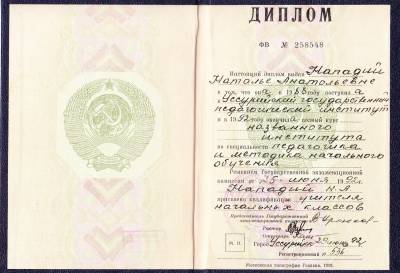 ДИПЛОМ
ФВ № 258548
Настоящий диплом выдан Нападий
Наталье Анатольевне
в том, что она в 1988 году поступила
в Уссурийский государственный
педагогический институт
и в 1992 году окончила полный курс
названного
института
по специальности педагогика
и методика начального
обучения
Решением Государственной экзаменационной
комиссии от 25 июня 1992 г.
Нападий Н.А.
присвоена квалификация учителя
начальных классов
Председатель Государственной
экзаменационной комиссии
Ректор
Секретарь
М. П.
Город Уссурийск 30 июня 1992 г.
Регистрационный № 536
Московская типография Гознака. 1990.